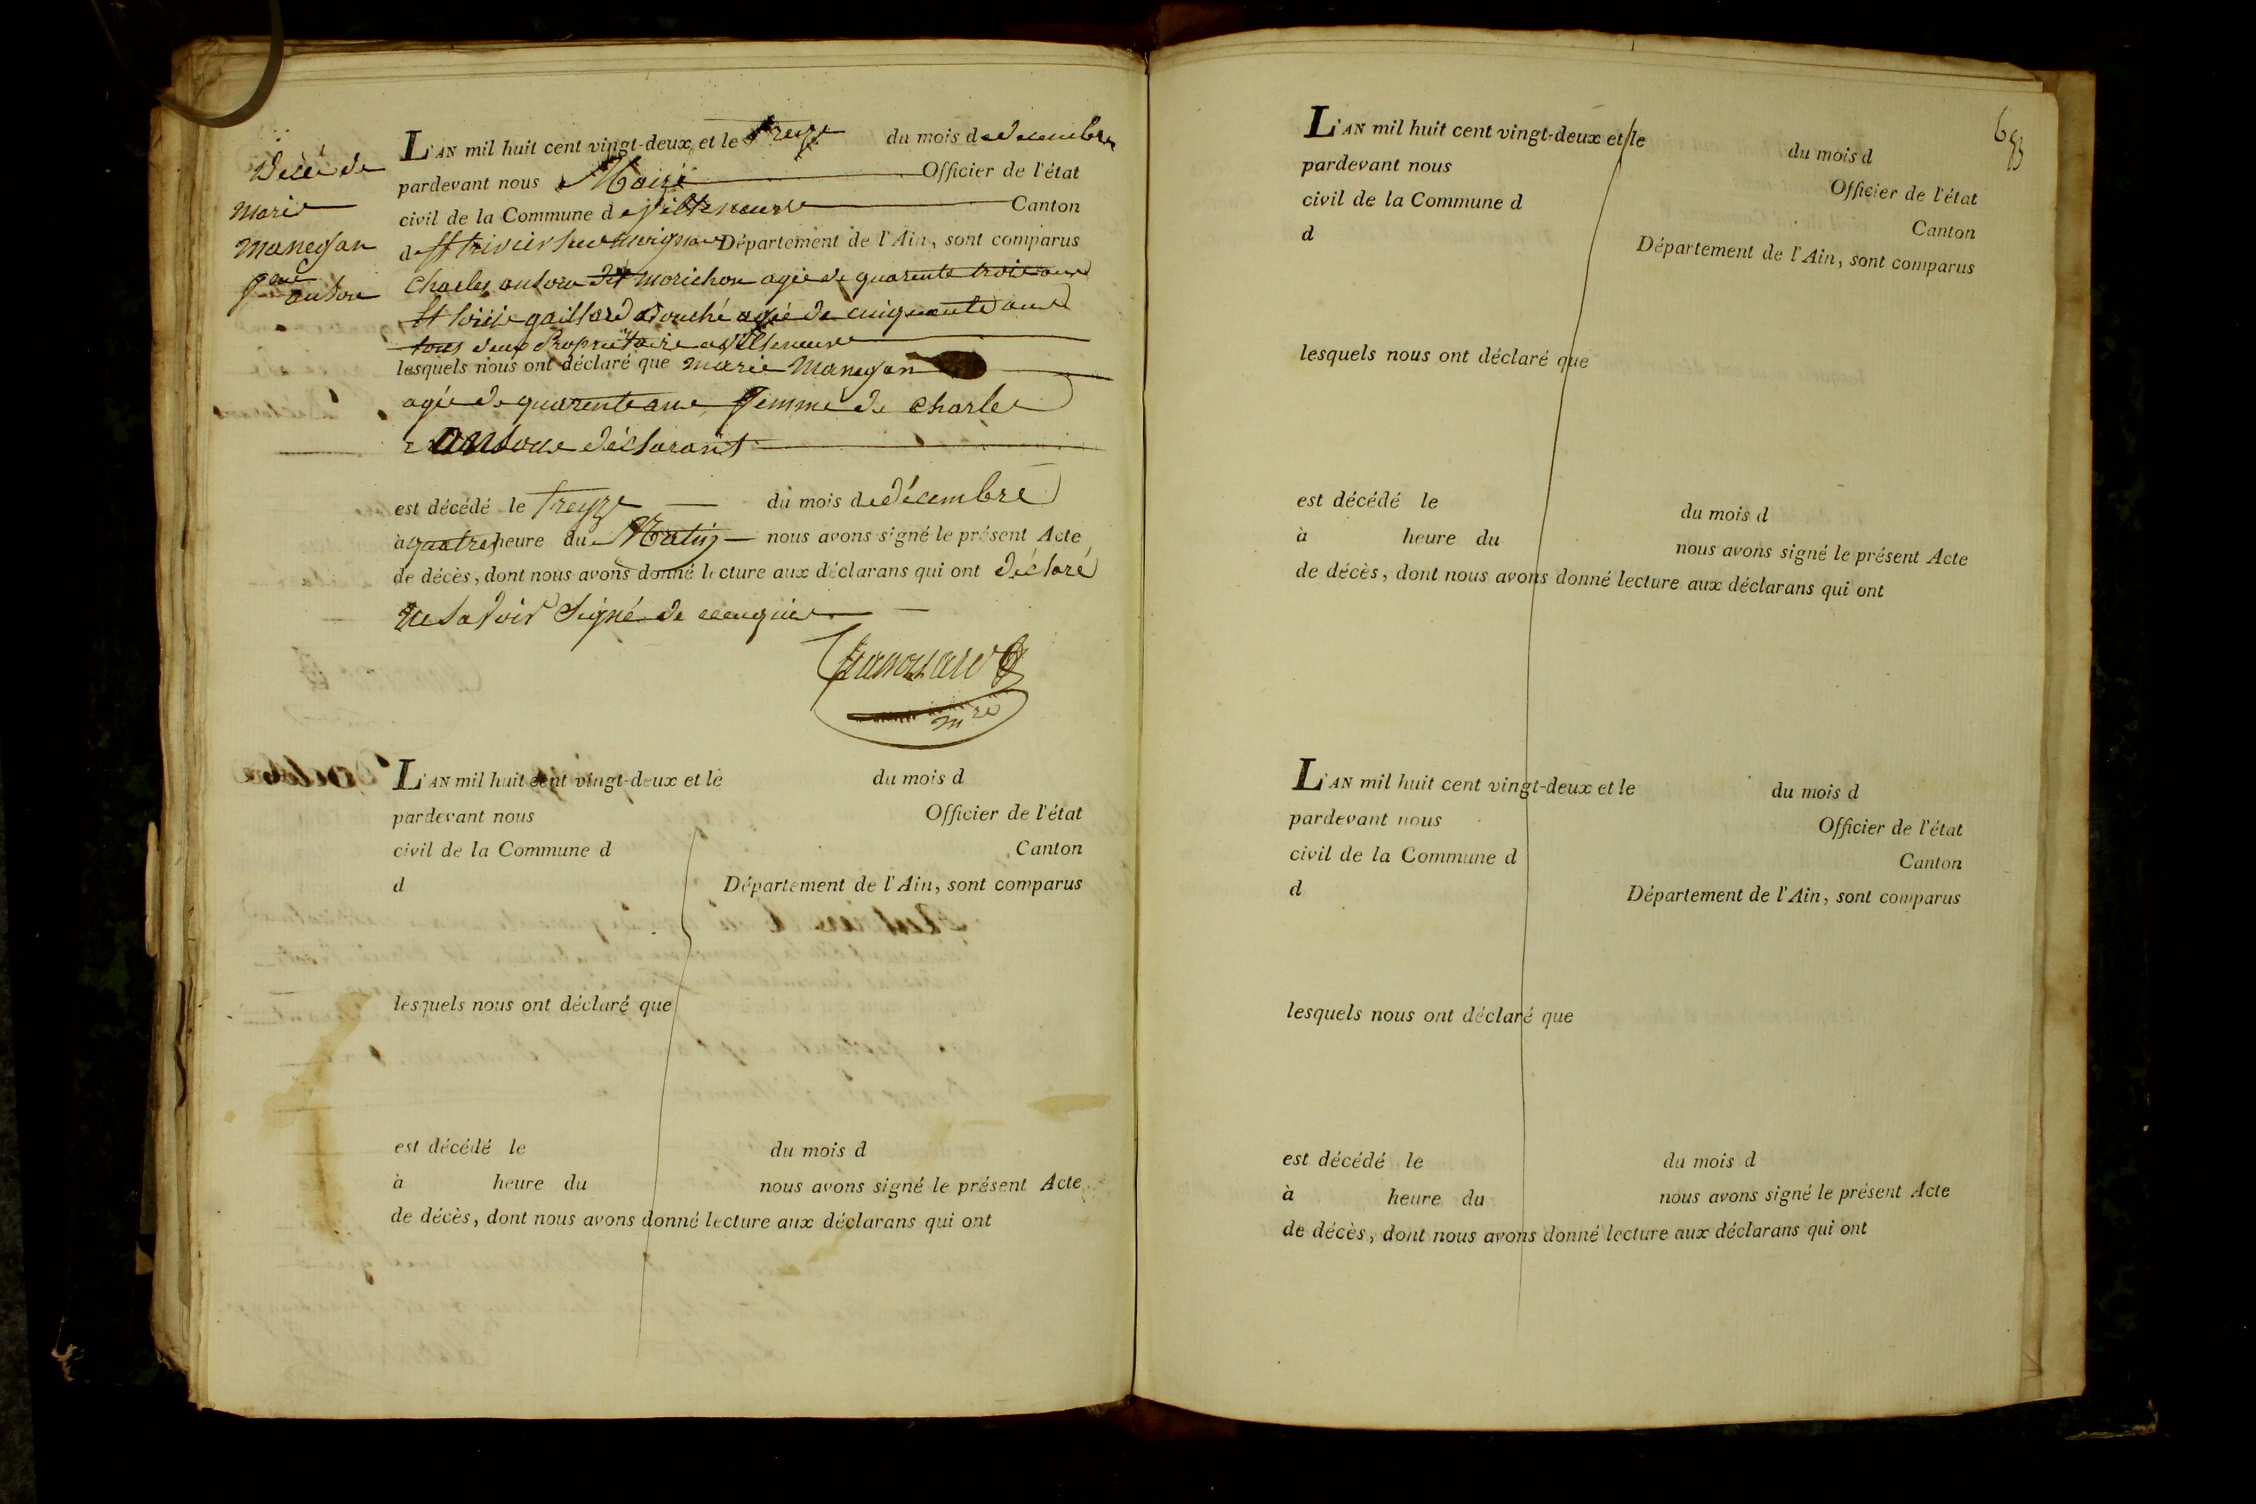 Décé de
Marie
Maneysan
fme
autour
L'AN mil huit cent vingt-deux et le treize du mois de décembre
pardevant nous Maire Officier de l'état
civil de la Commune de villeneuve Canton
de St trivier sur Moignan Département de l'Ain, sont comparus
Charles dit morichon agée de quarente trois ans
et gaillard agée de cinquante ans
tous deux Propriétaire a villeneuve
lesquels nous ont déclaré que marie Maneysan
agée de quarente ans femme de Charle
déclarant
est décédé le treize du mois de décembre
à quatre heure du Matin nous avons signé le présent Acte
de décès, dont nous avons donné lecture aux déclarans qui ont déclaré
ne savoir signé de
mre
L'AN mil huit cent vingt-deux et le du mois d
pardevant nous Officier de l'état
civil de la Commune d Canton
d Département de l'Ain, sont comparus
lesquels nous ont déclaré que
est décédé le du mois d
à heure du nous avons signé le présent Acte
de décès, dont nous avons donné lecture aux déclarans qui ont
L'AN mil huit cent vingt-deux et le du mois d
pardevant nous Officier de l'état
civil de la Commune d Canton
d Département de l'Ain, sont comparus
lesquels nous ont déclaré que
est décédé le du mois d
à heure du nous avons signé le présent Acte
de décès, dont nous avons donné lecture aux déclarans qui ont
L'AN mil huit cent vingt-deux et le du mois d
pardevant nous Officier de l'état
civil de la Commune d Canton
d Département de l'Ain, sont comparus
lesquels nous ont déclaré que
est décédé le du mois d
à heure du nous avons signé le présent Acte
de décès, dont nous avons donné lecture aux déclarans qui ont